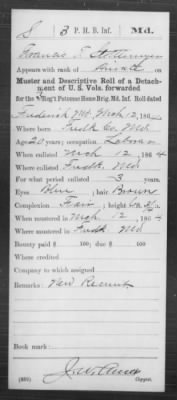 S | 3 | P. H. B. Inf. | Md.
Francis T. Stottlemyer
Appears with rank of Private on
Muster and Descriptive Roll of a Detach-
ment of U. S. Vols. forwarded
for the 3 Reg't Potomac Home Brig. Md. Inf. Roll dated
Frederick Md. Mch 12, 1864
Where born Fredk Co. Md.
Age 20 years; occupation Laborer
When enlisted Mch 12, 1864
Where enlisted Fredk. Md.
For what period enlisted 3 years.
Eyes Blue; hair Brown
Complexion Fair; height ft. in.
When mustered in Mch 12, 1864
Where mustered in Fredk Md.
Bounty paid $ 100; due $ 100
Where credited
Company to which assigned
Remarks: New Recruit
Book mark:
(339) Copyist.